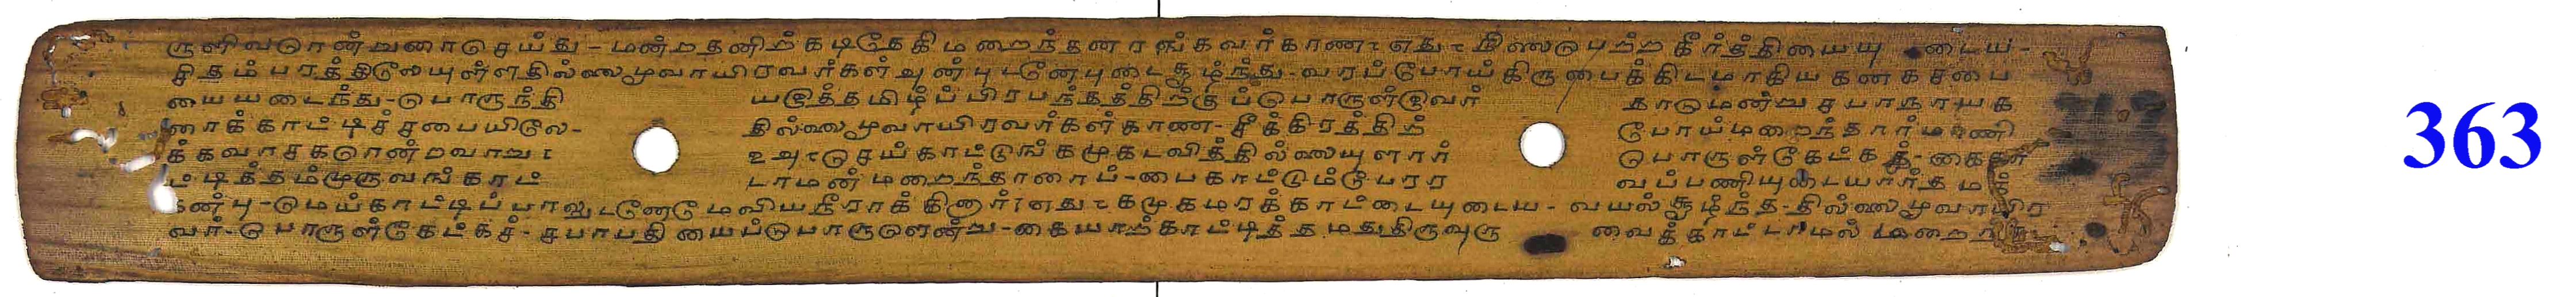 ருளிவடுான்றுனாடுசய்து - மன்றதனிற்கடிதேகிமறைந்தனரங்கவர்காண எது கிஸடுபுற்ற கீர்த்தியையு டைய -
சிதம்பரத்திலேயுள்ளதில்லைமூவாயிரவர்கள் அன்புடனேபுடைசூழ்ந்து - வரப்போய்கிருபைக்கிடமாகியகனகசபை
யையடைந்து - பொருந்தி யடுத்தமிழ்ப்பிரபந்தத்திற்குப்பொருள்இவர் தாமென்றுசபாநாயக
னாக்காட்டிச்சபையிலே - தில்லைமூவாயிரவர்கள்காண - சீக்கிரத்திற் போய்மறைந்தார்மாணி
க்கவாசகரென்றவாறு உஅ செய்காட்டுங்கமுகடவித்தில்லையுளார் பொருள்கேட்கத் - கைகா
ட்டித்தம்முருவங்காட் டாமன்மறைந்தானாய் - பைகாட்டும்பேரர வப்பணியுடையார்தமக்
கன்பு - மெய்காட்டிப்பாலுடனேமேவியநீராக்கினார் எது கமுகமரக்காட்டையுடைய - வயல்சூழ்ந்த - தில்லைமூவாயிர
வர் - பொருள்கேட்கச் - சபாபதியைப்பொருளென்று - கையாற்காட்டித்தமதுதிருவுரு வைக்காட்டாமல் மறைந்து
363